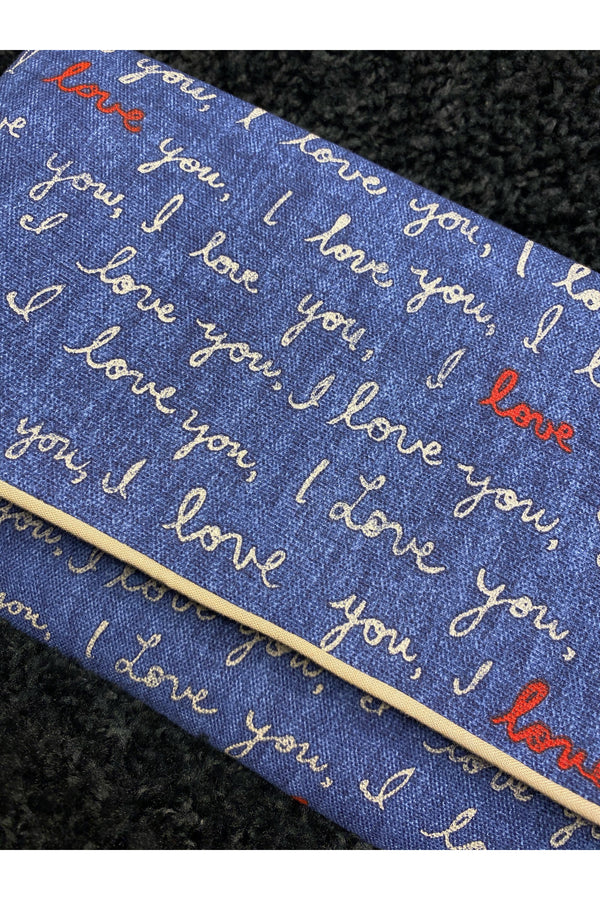 you, I love you, I lo
love you, I love you, I
you, I love you, I love
I love you, I love you,
I love you, I Love you,
you, I love you, I love
you, I love you, I love you
you, I Love you, I lo